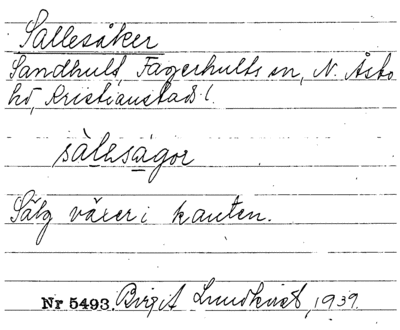 Sallesåker
Sandhult, Fagerhults sn, N. Åsbo
hd, Kristianstads l.
sàlesågor
Sälg växer i kanten.
Nr 5493. Birgit Lundkvist, 1939.